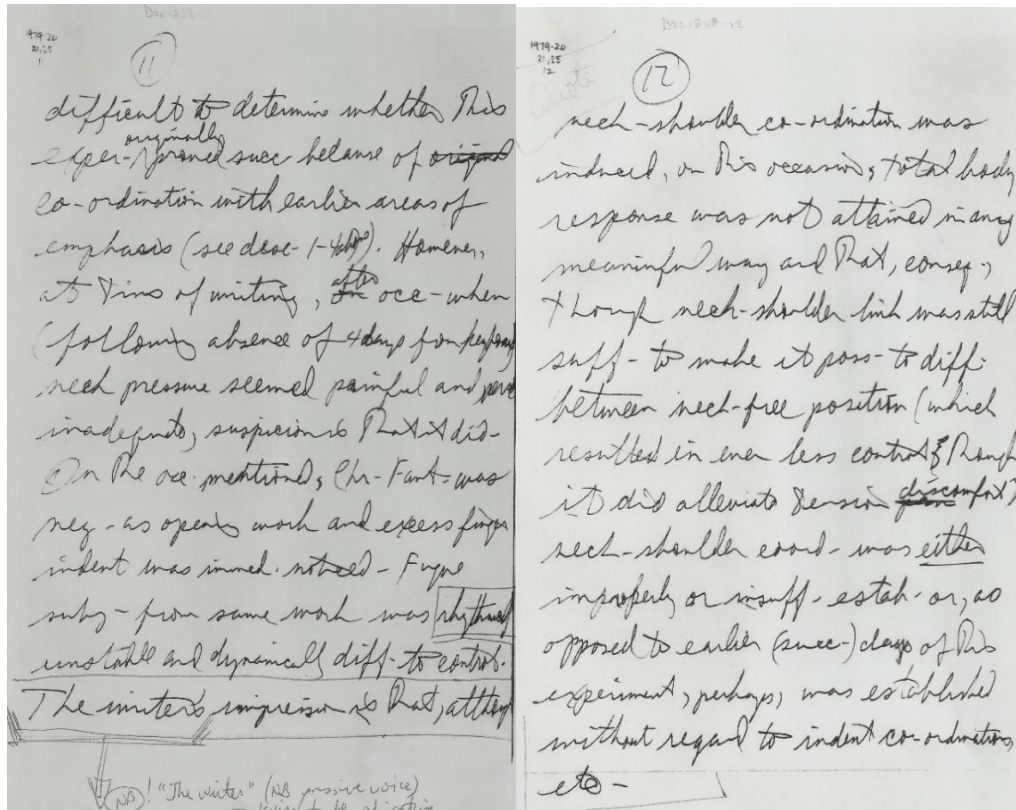 Doc 1208-11
1979-20
21,25
11
11
difficult to determine whether this
originally
exper- proved succ- because of
co-ordination with earlier areas of
emphasis (see desc- 1-4 above). However,
at time of writing, after occ- when
(following absence of 4 days from keyboard)
neck pressure seemed painful and
inadequate, suspicion is that it did-
On the occ. mentioned, Chr- Fant- was
neg- as opening work and excess finger
indent was immed. noticed- Fugue
subj- from same work was rhythmically
unstable and dynamically diff- to control.
The writer's impression is that, although
NB! "The writer" (NB passive voice)
Doc 1208-12
1979-20
21,25
12
Quote
12
neck-shoulder co-ordination was
induced, on this occasion, total body
response was not attained in any
meaningful way and that, conseq-,
though neck-shoulder link was still
suff- to make it poss- to diff-
between neck-free position (which
resulted in even less control though
it did alleviate tension discomfort)
neck-shoulder coord- was either
improperly or insuff- estab- or, as
opposed to earlier (succ-) days of this
experiment, perhaps, was established
without regard to indent co-ordinations,
etc-